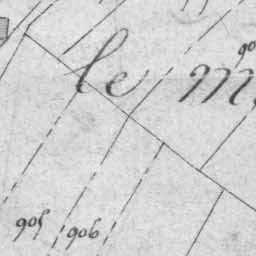 le M
905 906